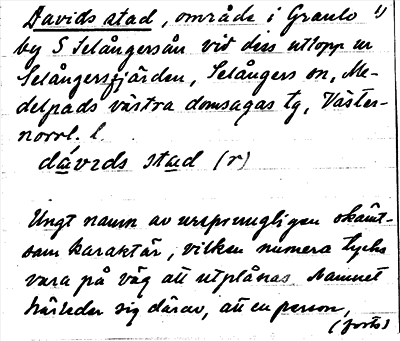 Davids stad, område i Granlo 1)
by S Selångersån vid dess utlopp ur
Selångersfjärden, Selångers sn, Me-
delpads västra domsagas tg, Väster-
norrl. l.
dävids stad (r)
Ungt namn av ursprungligen skämt-
sam karaktär, vilken numera tycks
vara på väg att utplånas. Namnet
härleder sig därav, att en person,
(forts)